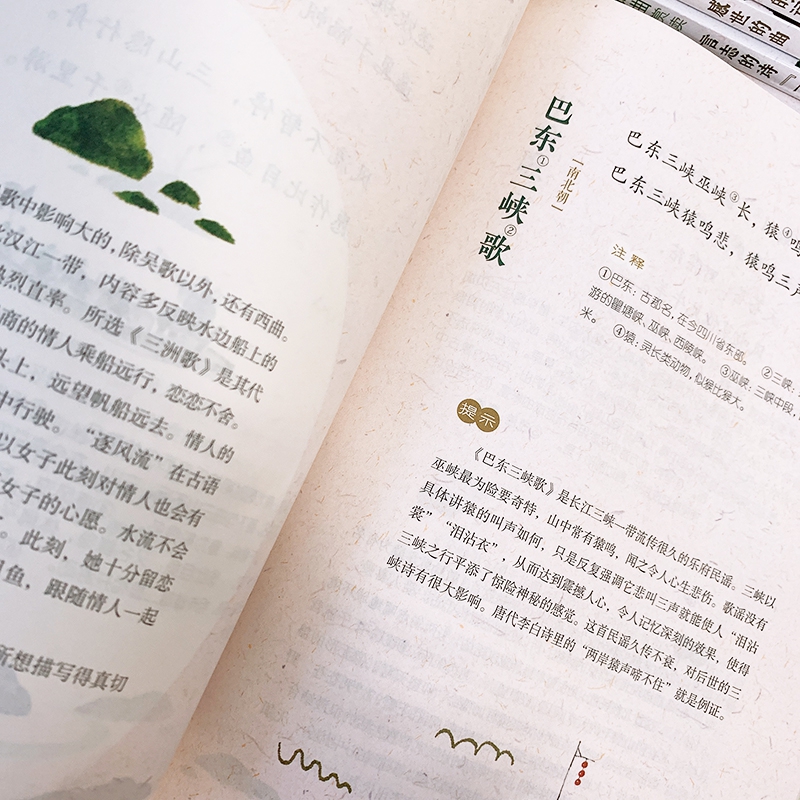 歌中影响大的，除吴歌以外，还有西曲。
汉江一带，内容多反映水边船上的
热烈直率。所选《三洲歌》是其代
商的情人乘船远行，恋恋不舍。
头上，远望帆船远去。情人的
中行驶。“逐风流”在古语
以女子此刻对情人也会有
女子的心愿。水流不会
此刻，她十分留恋
目鱼，跟随情人一起
所想描写得真切
巴东①三峡②歌
[南北朝]
巴东三峡巫峡③长，猿④鸣
巴东三峡猿鸣悲，猿鸣三声
注释
①巴东：古郡名，在今四川省东部。 ②三峡：
游的瞿塘峡、巫峡、西陵峡。 ③巫峡：三峡中段，
米。 ④猿：灵长类动物，似猴比猴大。
提示
《巴东三峡歌》是长江三峡一带流传很久的乐府民谣。三峡以
巫峡最为险要奇特，山中常有猿鸣，闻之令人心生悲伤。歌谣没有
具体讲猿的叫声如何，只是反复强调它悲叫三声就能使人“泪沾
裳”“泪沾衣”，从而达到震撼人心，令人记忆深刻的效果，使得
三峡之行平添了惊险神秘的感觉。这首民谣久传不衰，对后世的三
峡诗有很大影响。唐代李白诗里的“两岸猿声啼不住”就是例证。